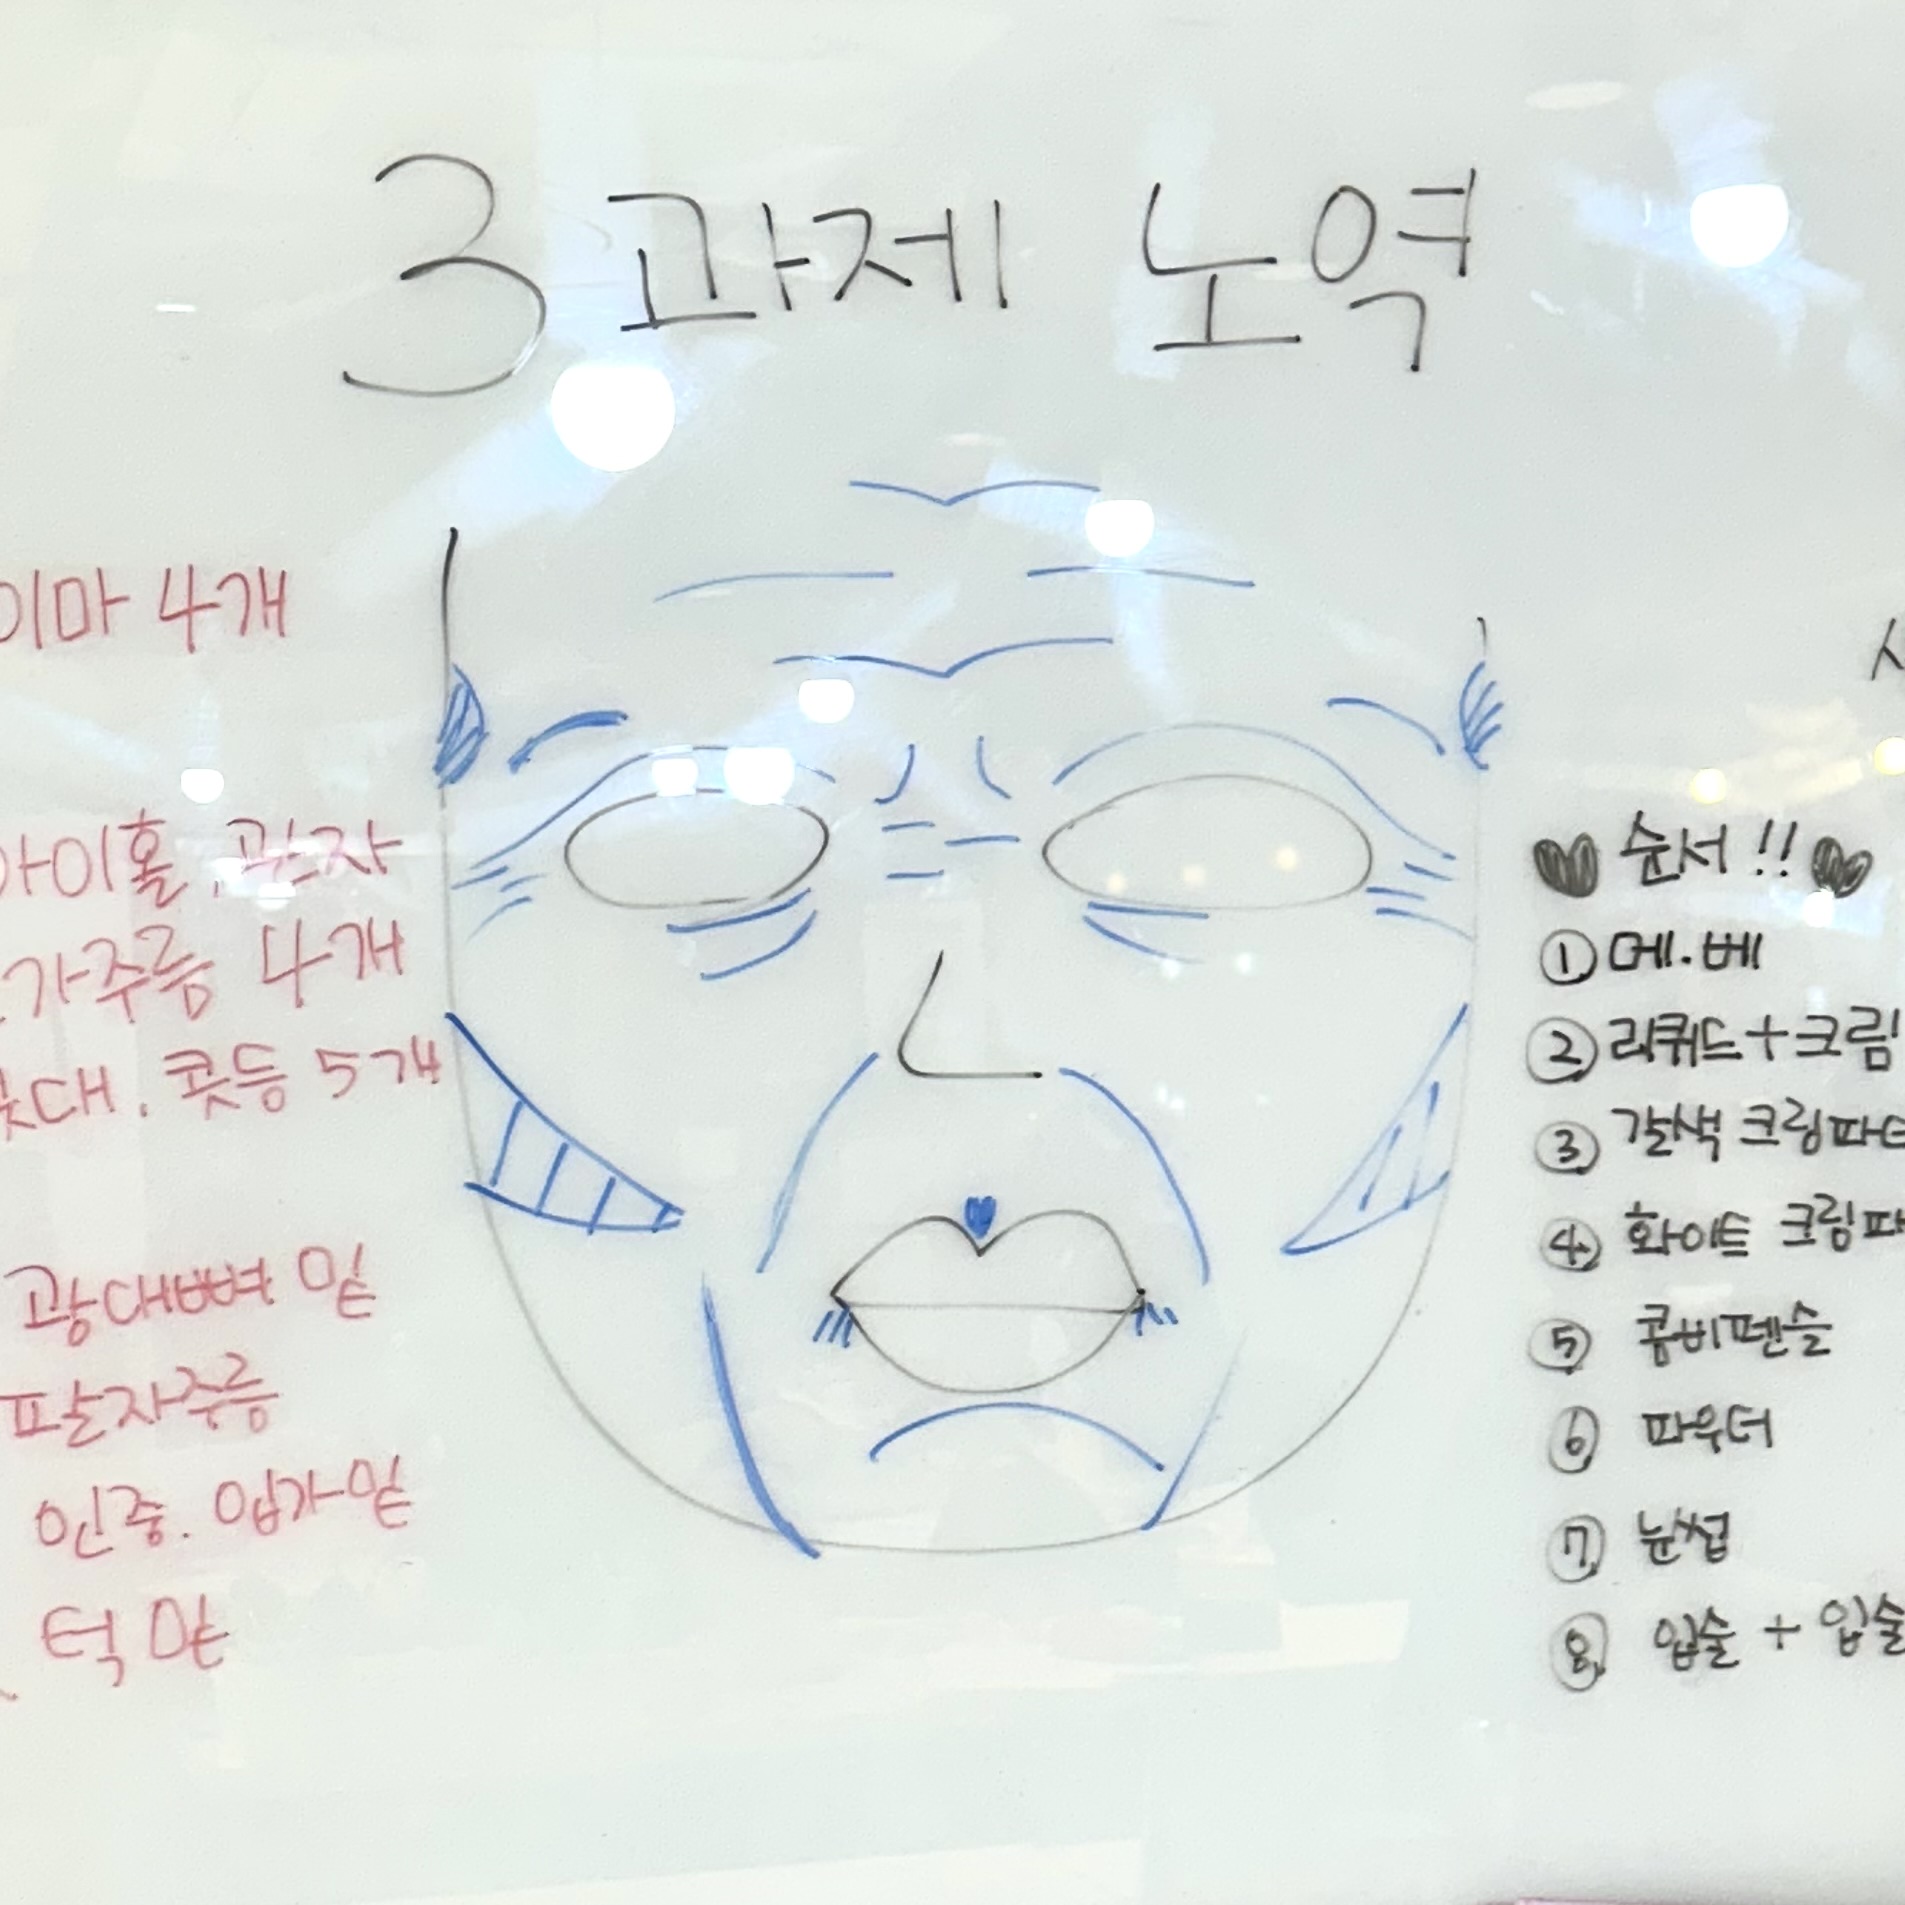 3과제 노역
이마 4개
아이홀, 관자
가주름 4개
콧대. 콧등 5개
광대뼈 밑
팔자주름
인중. 입가밑
턱 밑
순서!!
① 메.베
② 리퀴드+크림
③ 갈색 크림파
④ 화이트 크림파
⑤ 콤비펜슬
⑥ 파우더
⑦ 눈썹
⑧ 입술 + 입술